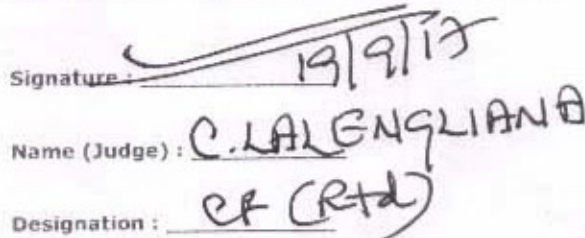 Signature : 19/9/17
Name (Judge) : C. LALENGLIANA
Designation : CF (Rtd)